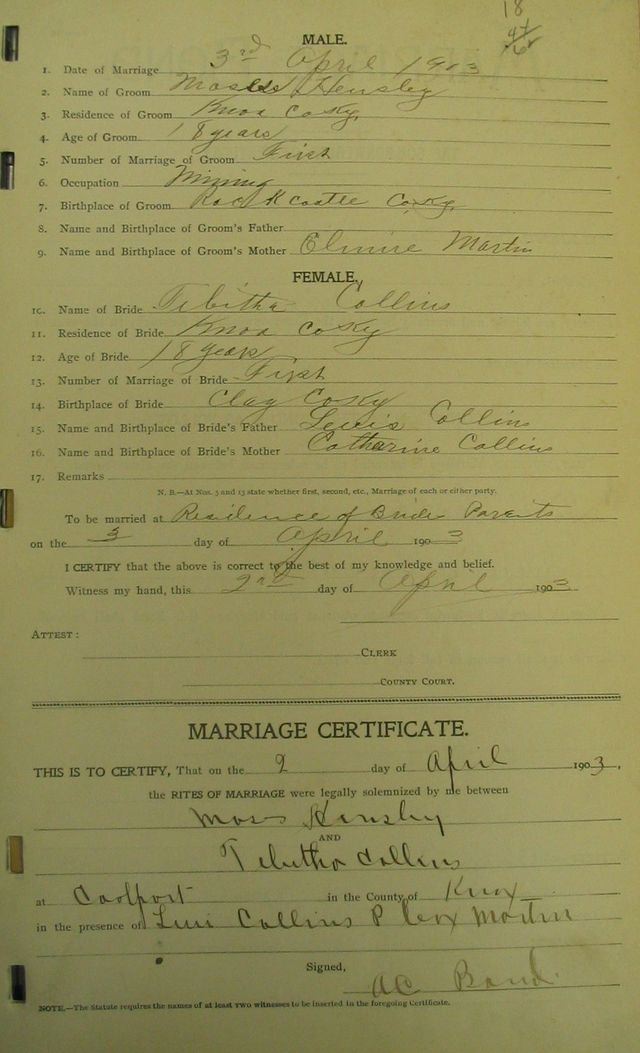 18
MALE.
1. Date of Marriage 3rd April 1903
2. Name of Groom Moses Hensley
3. Residence of Groom Knox Co Ky
4. Age of Groom 18 years
5. Number of Marriage of Groom First
6. Occupation Mining
7. Birthplace of Groom Rock Castle Co. Ky.
8. Name and Birthplace of Groom's Father
9. Name and Birthplace of Groom's Mother Elmire Martin
FEMALE.
10. Name of Bride Tibitha Collins
11. Residence of Bride Knox Co Ky
12. Age of Bride 18 years
13. Number of Marriage of Bride First
14. Birthplace of Bride Clay Co Ky
15. Name and Birthplace of Bride's Father Lewis Collins
16. Name and Birthplace of Bride's Mother Catharine Collins
17. Remarks
N. B.—At Nos. 5 and 13 state whether first, second, etc., Marriage of each or either party.
To be married at Residence of Bride Parents
on the 3 day of April 1903
I CERTIFY that the above is correct to the best of my knowledge and belief.
Witness my hand, this 2nd day of April 1903
ATTEST:
CLERK
COUNTY COURT.
MARRIAGE CERTIFICATE.
THIS IS TO CERTIFY, That on the 2 day of April 1903,
the RITES OF MARRIAGE were legally solemnized by me between
Moses Hensley
AND
Tibitha Collins
at Coalport in the County of Knox
in the presence of Collins P Martin
Signed,
AC
NOTE.—The Statute requires the names of at least two witnesses to be inserted in the foregoing Certificate.